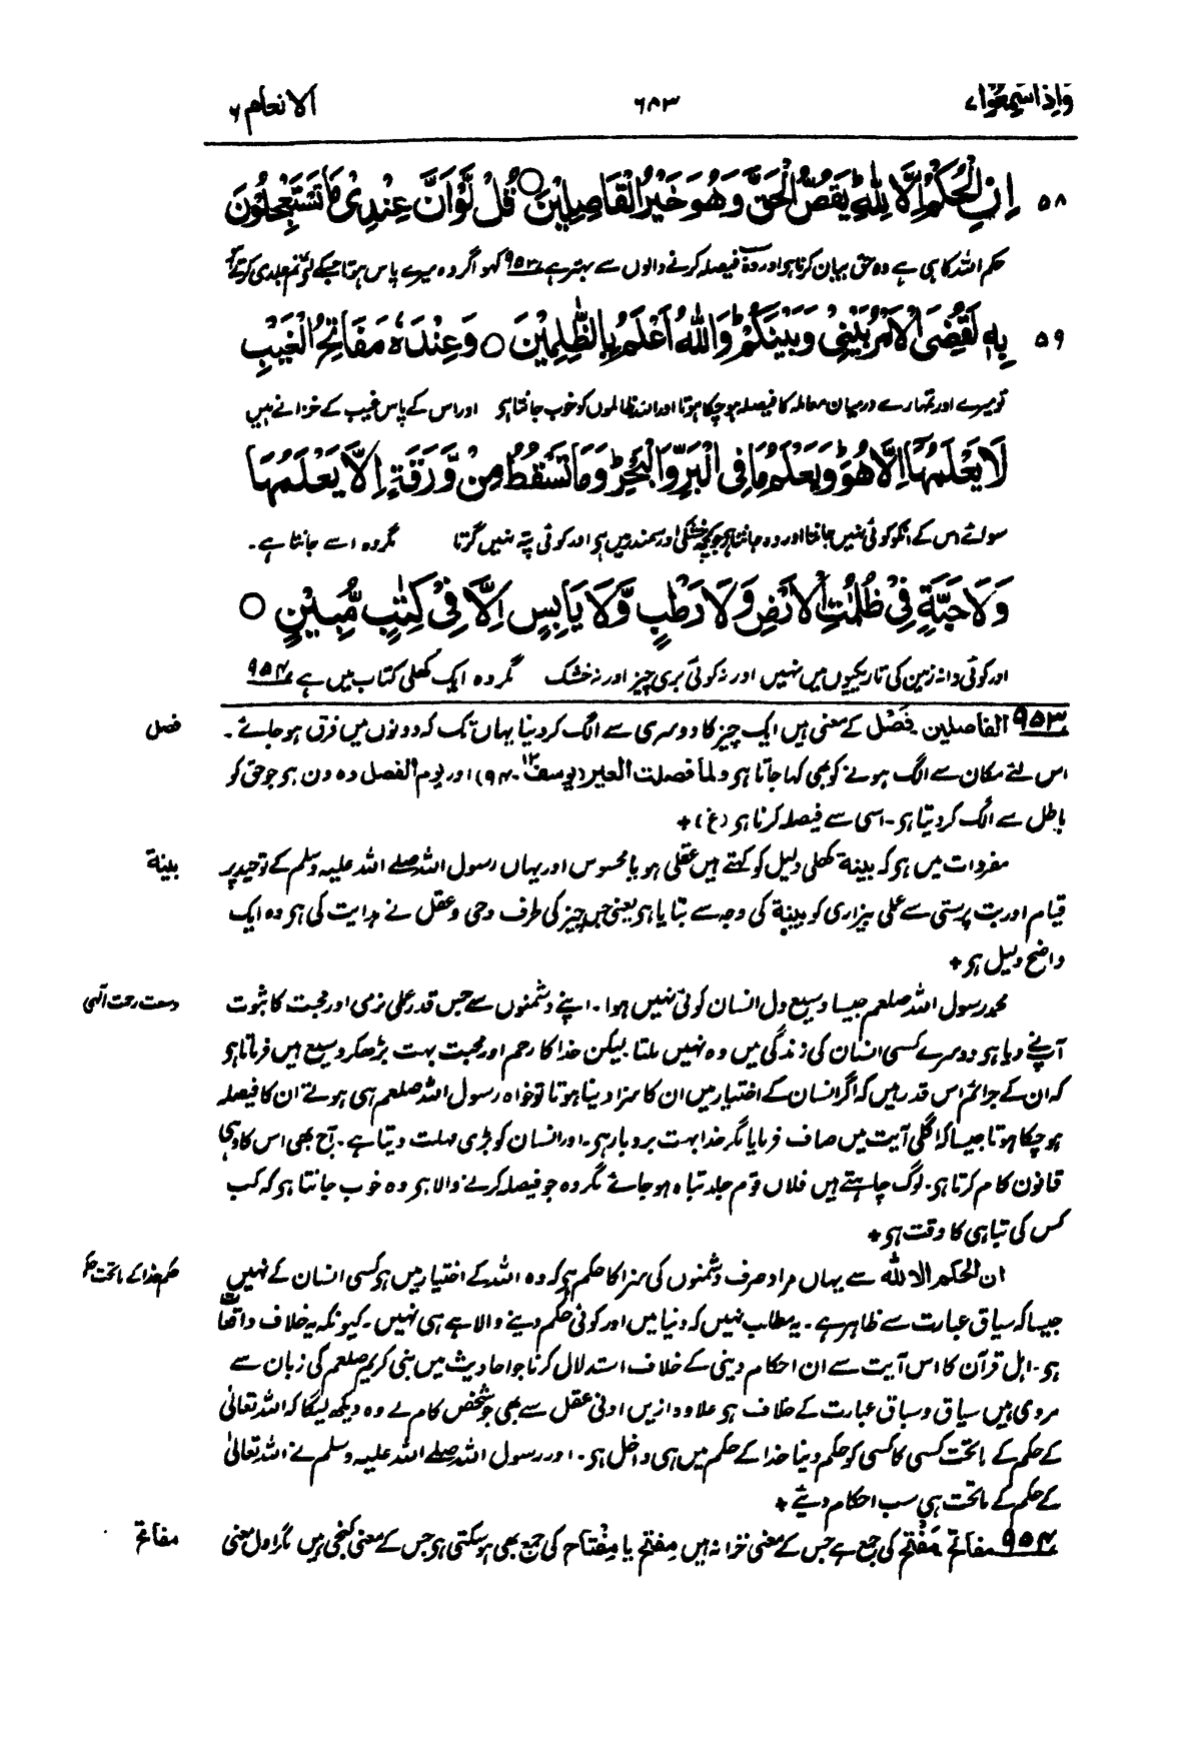 واذاسمعوا ٧ ٦٨٣ الانعام ٦
٥٨ اِنِ الْحُكْمُ اِلَّا لِلّٰهِ يَقُصُّ الْحَقَّ وَهُوَ خَيْرُ الْفَاصِلِيْنَ ○ قُلْ لَّوْ اَنَّ عِنْدِيْ مَا تَسْتَعْجِلُوْنَ
حکم اللہ کا ہی ہے وہ حق بیان کرتا ہو اور وہ فیصلہ کرنے والوں سے بہتر ہے ۹۵۳ کہو اگر وہ میرے پاس ہوتا جسکے لئے تم جلدی کرتے
٥٩ بِهٖ لَقُضِيَ الْاَمْرُ بَيْنِيْ وَبَيْنَكُمْ وَاللّٰهُ اَعْلَمُ بِالظّٰلِمِيْنَ ○ وَعِنْدَهٗ مَفَاتِحُ الْغَيْبِ
تو میرے اور تمہارے درمیان معاملہ کا فیصلہ ہوچکا ہوتا اور اللہ ظالموں کو خوب جانتا ہو اور اس کے پاس غیب کے خزانے ہیں
لَا يَعْلَمُهَاۤ اِلَّا هُوَ وَيَعْلَمُ مَا فِي الْبَرِّ وَالْبَحْرِ وَمَا تَسْقُطُ مِنْ وَّرَقَةٍ اِلَّا يَعْلَمُهَا
سوائے اس کے انکو کوئی نہیں جانتا اور وہ جانتا ہو جو کچھ خشکی اور سمندر میں ہو اور کوئی پتہ نہیں گرتا مگر وہ اسے جانتا ہے۔
وَلَا حَبَّةٍ فِيْ ظُلُمٰتِ الْاَرْضِ وَلَا رَطْبٍ وَّلَا يَابِسٍ اِلَّا فِيْ كِتٰبٍ مُّبِيْنٍ ○
اور کوئی دانہ زمین کی تاریکیوں میں نہیں اور نہ کوئی ہری چیز اور نہ خشک مگر وہ ایک کھلی کتاب میں ہے ۹۵۴
۹۵۳ الفاصلین۔ فَصْل کے معنی ہیں ایک چیز کا دوسری سے الگ کردینا یہاں تک کہ دونوں میں فرق ہوجائے۔ فصل
اس لئے مکان سے الگ ہونے کو بھی کہا جاتا ہو ولما فصلت العیر (یوسف ۱۲۔ ۹۴) اور یوم الفصل وہ دن ہو جو حق کو
باطل سے الگ کردیتا ہو۔ اسی سے فیصلہ کرنا ہو (غ) +
مفردات میں ہو کہ بینة کھلی دلیل کو کہتے ہیں عقلی ہو یا محسوس اور یہاں رسول اللہ صلے اللہ علیہ وسلم کے توحید پر بینة
قیام اور بت پرستی سے عملی بیزاری کو بینة کی وجہ سے بتایا ہو یعنی جس چیز کی طرف وحی و عقل نے ہدایت کی ہو وہ ایک
واضح دلیل ہو +
محمد رسول اللہ صلعم جیسا وسیع دل انسان کوئی نہیں ہوا۔ اپنے دشمنوں سے جس قدر عملی نرمی اور محبت کا ثبوت وسعت رحمت الٰہی
آپنے دیا ہو دوسرے کسی انسان کی زندگی میں وہ نہیں ملتا۔ لیکن خدا کا رحم اور محبت بہت بڑھکر وسیع ہیں فرماتا ہو
کہ ان کے جرائم اس قدر ہیں کہ اگر انسان کے اختیار میں ان کا سزا دینا ہوتا تو خواہ رسول اللہ صلعم ہی ہوتے ان کا فیصلہ
ہوچکا ہوتا جیسا کہ اگلی آیت میں صاف فرمایا مگر خدا بہت بردبار ہو۔ اور انسان کو بڑی مہلت دیتا ہے۔ آج بھی اس کا وہی
قانون کام کرتا ہو۔ لوگ چاہتے ہیں فلاں قوم جلد تباہ ہوجائے مگر وہ جو فیصلہ کرنے والا ہو وہ خوب جانتا ہو کہ کب
کس کی تباہی کا وقت ہو +
ان الحکم الا للہ سے یہاں مراد صرف دشمنوں کی سزا کا حکم ہو کہ وہ اللہ کے اختیار میں ہو کسی انسان کے نہیں حکم خدا کے ماتحت حکم
جیسا کہ سیاق عبارت سے ظاہر ہے۔ یہ مطلب نہیں کہ دنیا میں اور کوئی حکم دینے والا ہے ہی نہیں۔ کیونکہ یہ خلاف واقعات
ہو۔ اہل قرآن کا اس آیت سے ان احکام دینی کے خلاف استدلال کرنا جو احادیث میں نبی کریم صلعم کی زبان سے
مروی ہیں سیاق و سباق عبارت کے خلاف ہو علاوہ ازیں ادنیٰ عقل سے بھی جو شخص کام لے وہ دیکھ لیگا کہ اللہ تعالیٰ
کے حکم کے ماتحت کسی کا کسی کو حکم دینا خدا کے حکم میں ہی داخل ہو۔ اور رسول اللہ صلے اللہ علیہ وسلم نے اللہ تعالیٰ
کے حکم کے ماتحت ہی سب احکام دیئے +
۹۵۴ مفاتح مَفْتَح کی جمع ہے جس کے معنی خزانہ ہیں مِفتح یا مِفْتاح کی جمع بھی ہوسکتی ہو جس کے معنی کنجی ہیں مگر اول معنی مفاتح